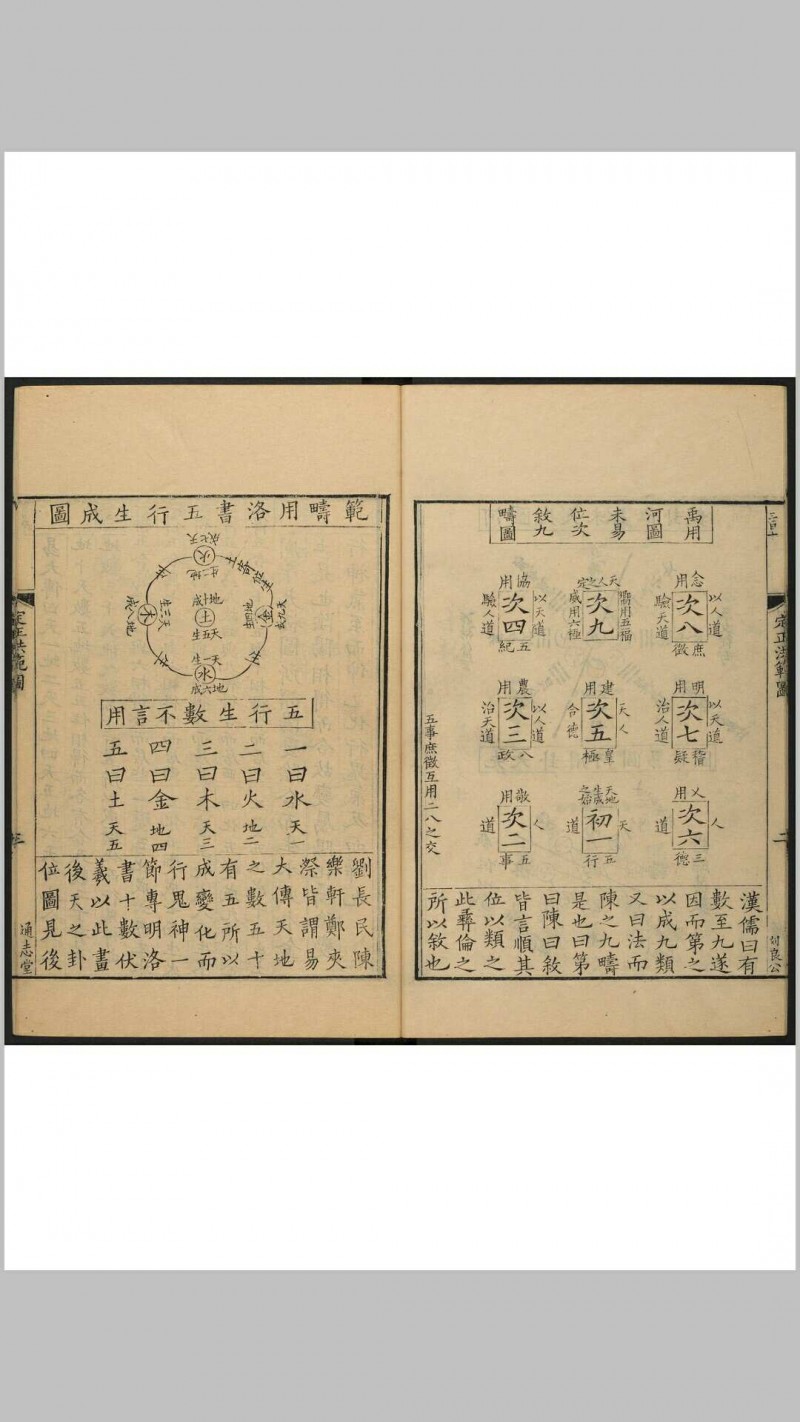 禹用
河圖
未易
位次
敘九
疇圖
念用
次八
庶徵
以人道
驗天道
天人之定
次九
嚮用五福
威用六極
協用
次四
五紀
以天道
驗人道
明用
次七
稽疑
以天道
治人道
建用
次五
皇極
天人
合德
農用
次三
八政
以人道
治天道
乂用
次六
三德
人
道
初一
五行
天
道
敬用
次二
五事
人
道
五事庶徵互用二八之交
漢儒曰有
數至九遂
因而第之
以成九類
又曰法而
陳之九疇
是也曰第
曰陳曰敘
皆言順其
位以類之
此彝倫之
所以敘也
定正洪範圖
二
範疇用洛書五行生成圖
火
地二生
天七成
金
木
天三生
地八成
地十成
土
天五生
天一生
水
地六成
五行生數不言用
一曰水 天一
二曰火 地二
三曰木 天三
四曰金 地四
五曰土 天五
劉長民陳
樂軒鄭夾
漈皆謂易
大傳天地
之數五十
有五所以
成變化而
行鬼神一
節專明洛
書十數伏
羲以此畫
後天之卦
位圖見後
定正洪範圖
通志堂